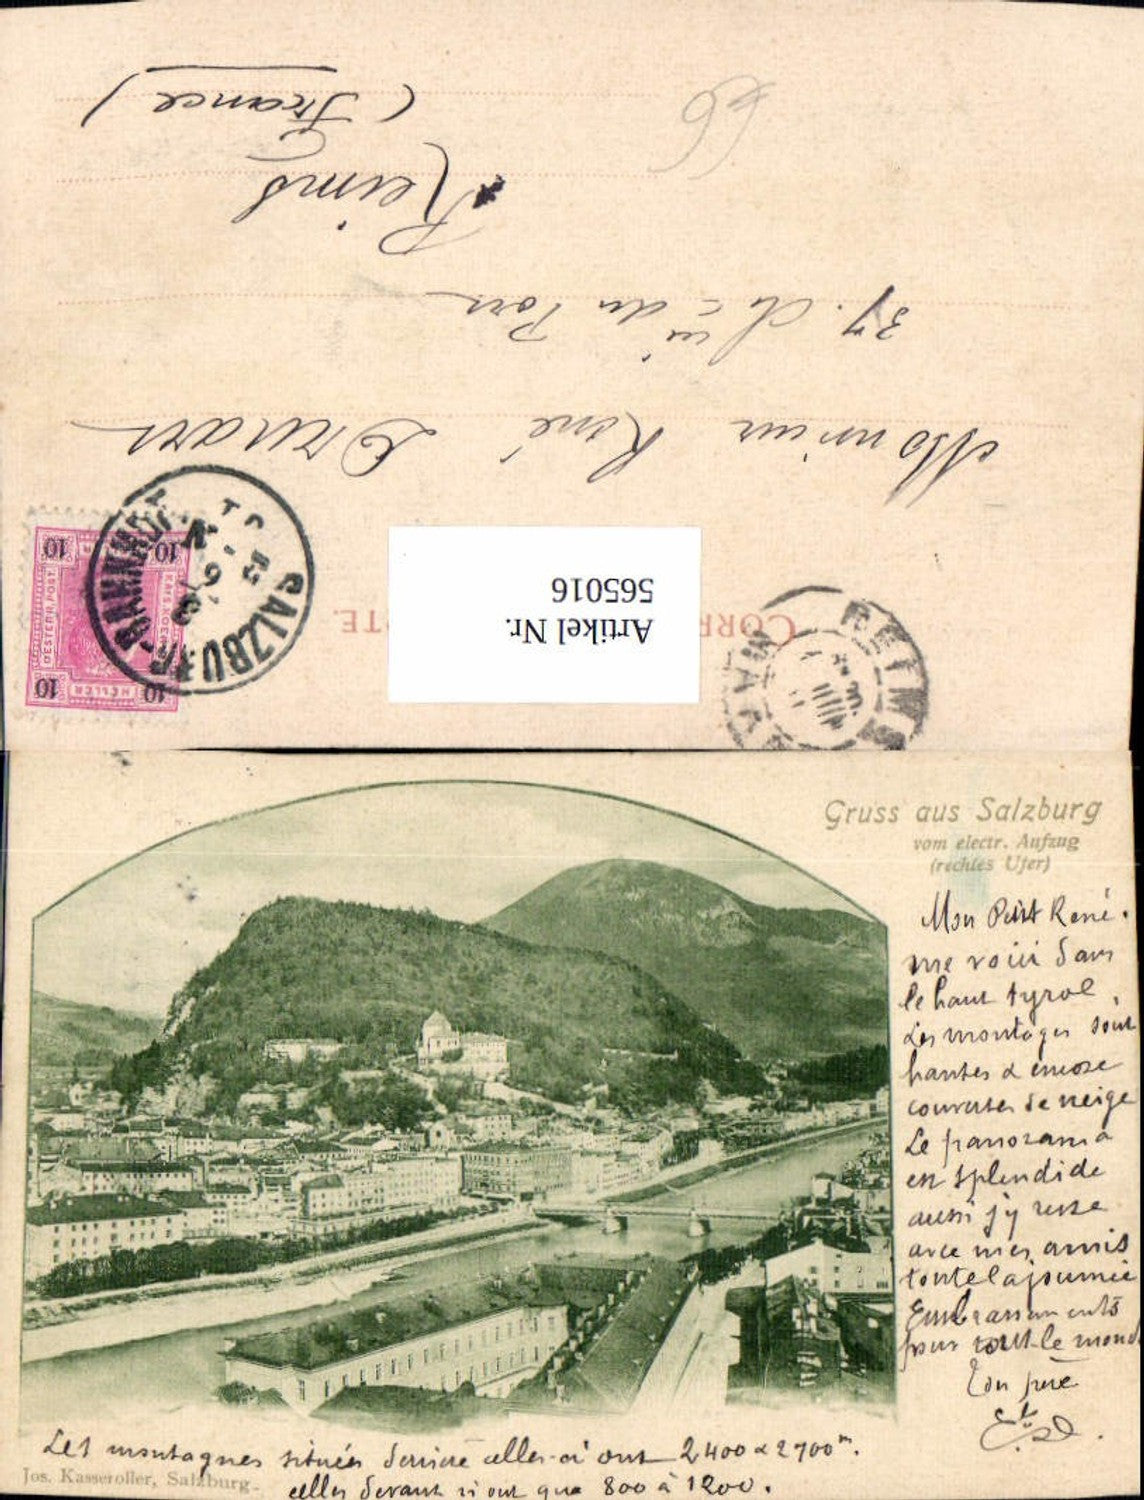 (France)
Reims
37. du
Monsieur René
66
10
10
10
10
OESTERR. POST.
HELLER
SALZBURG-BAHNHOF
REIMS
MARNE
Artikel Nr.
565016
Gruss aus Salzburg
vom electr. Aufzug
(rechtes Ufer)
Mon Petit René.
me voici dans
le haut tyrol,
Les montages sont
hautes & encore
couvertes de neige
Le panorama
est splendide
aussi j'y reste
avec mes amis
toute la journée
Embrassements
pour tout le monde
Ton père
Les montagnes situées derrière celles-ci ont 2400 & 2700 m.
celles devant n'ont que 800 à 1200.
Jos. Kasseroller, Salzburg.